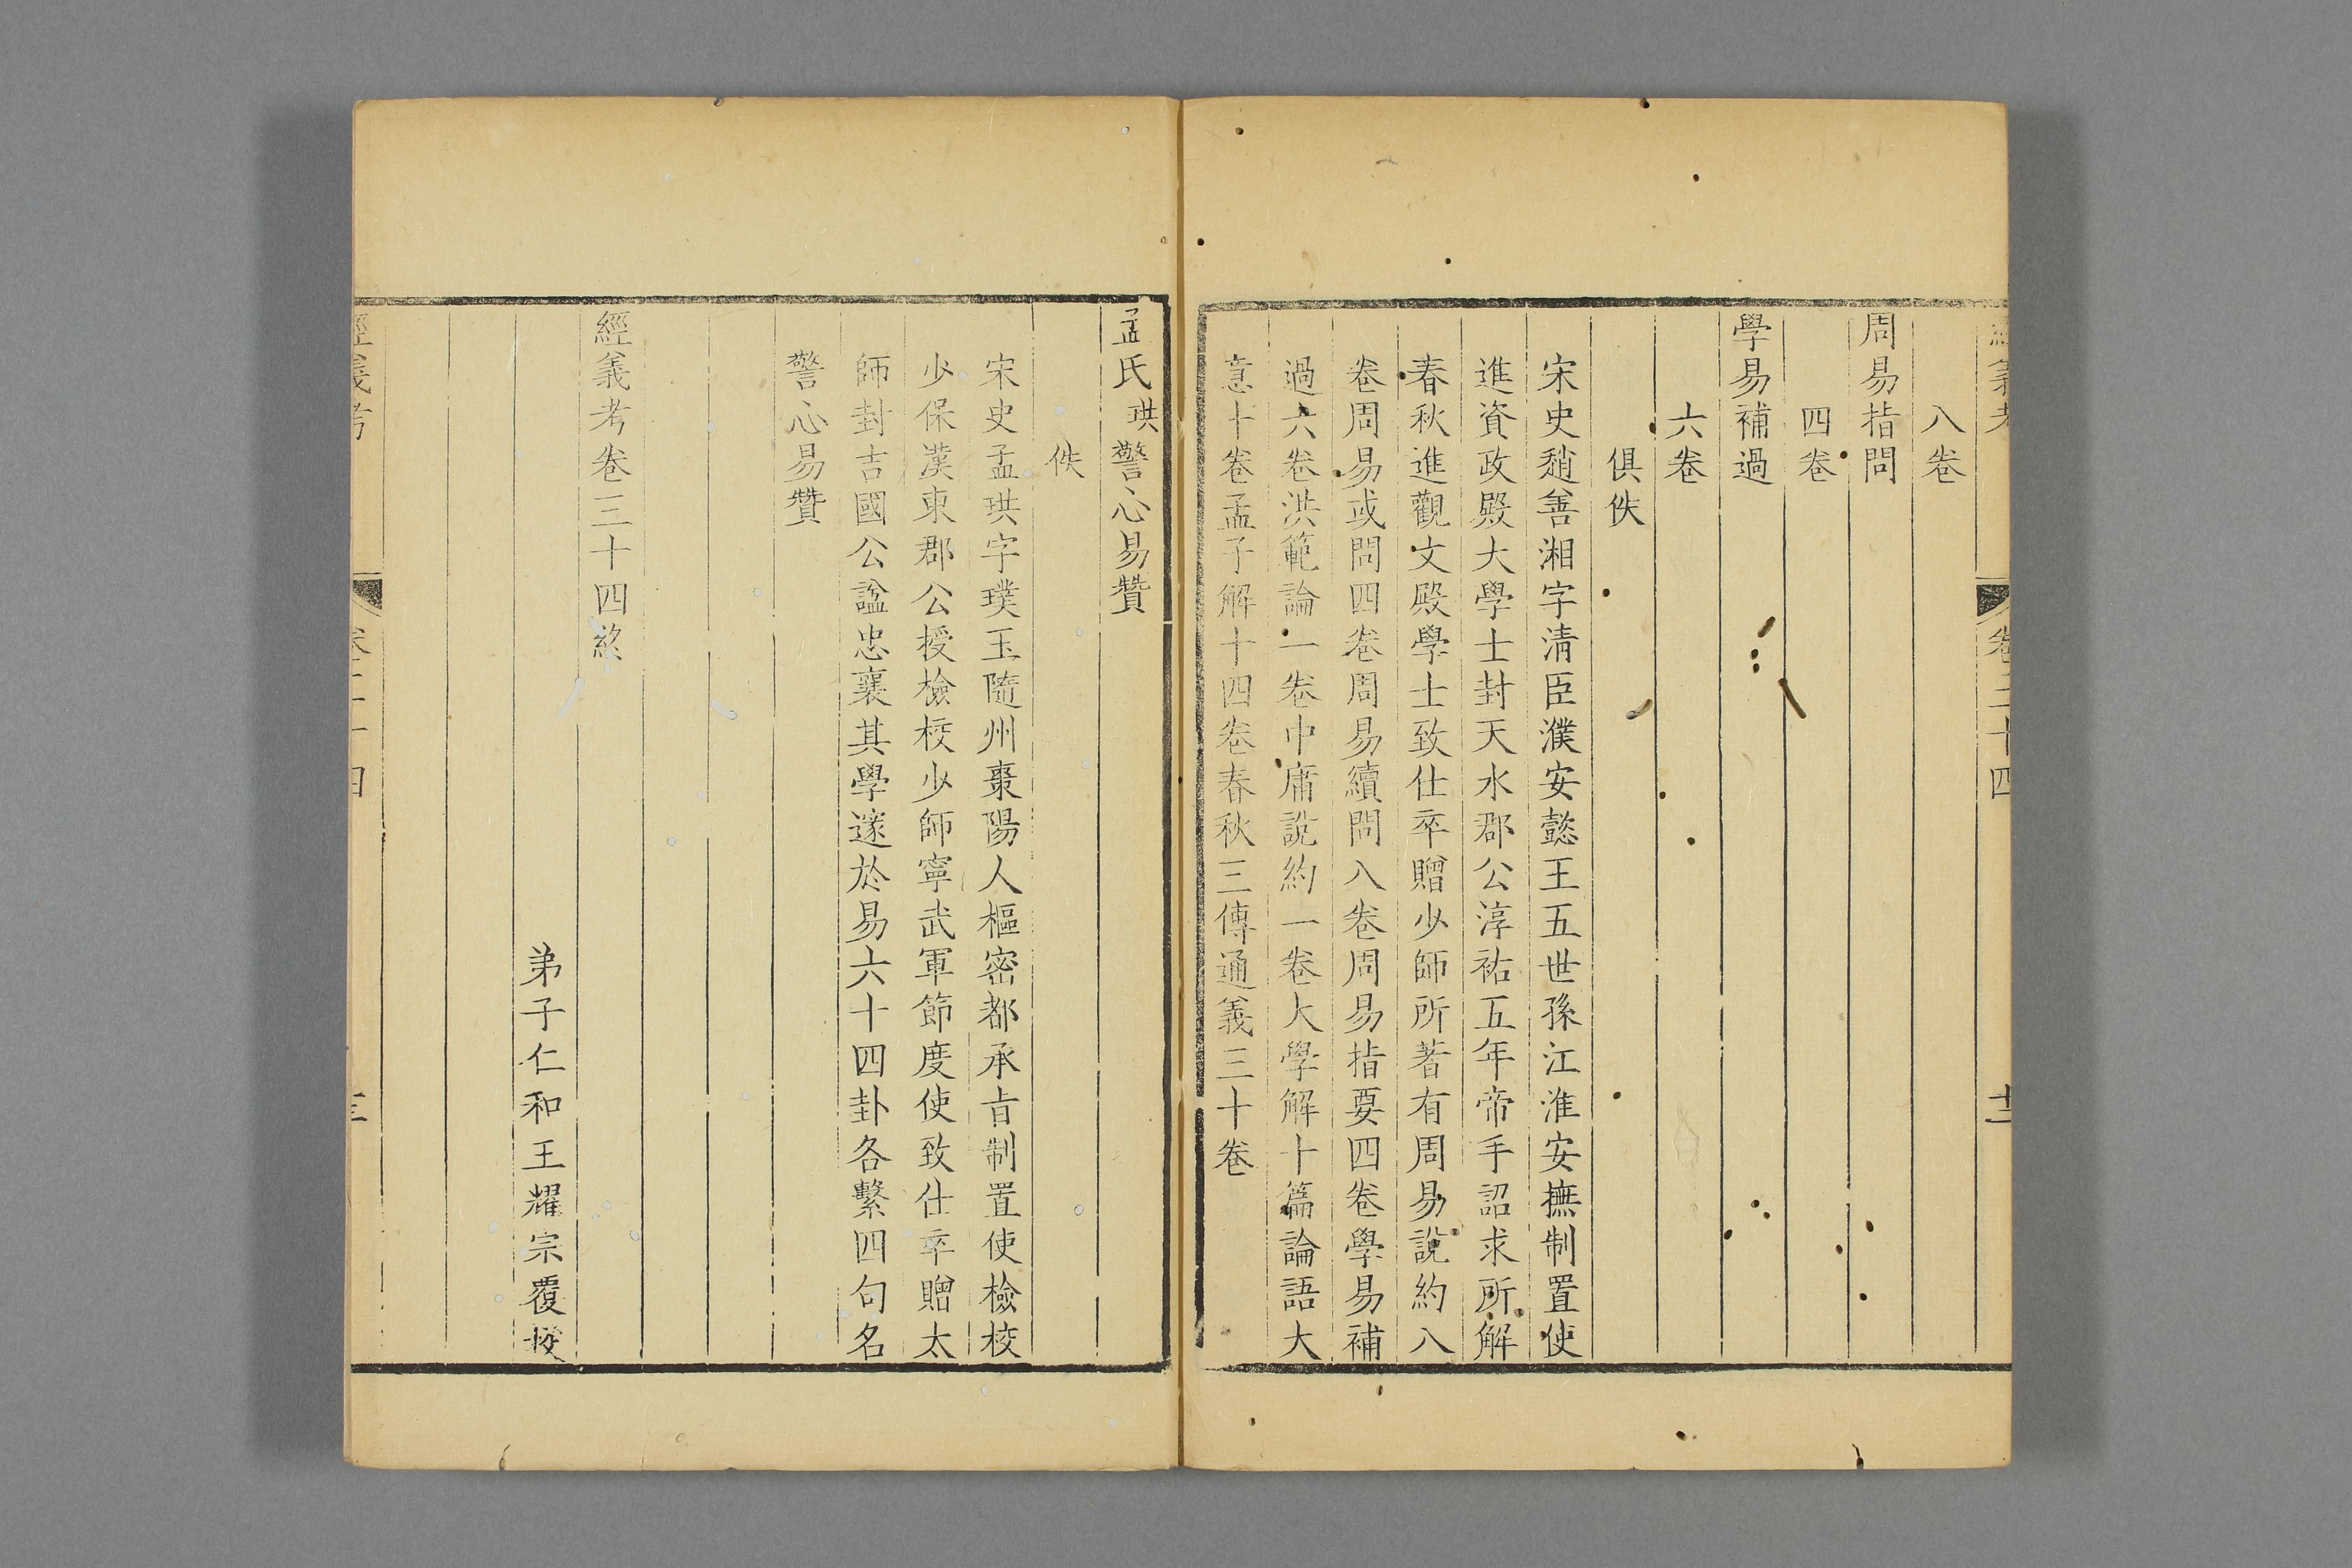 經義考
卷三十四
八卷
周易指問
四卷
學易補過
六卷
俱佚
宋史趙善湘字淸臣濮安懿王五世孫江淮安撫制置使
進資政殿大學士封天水郡公淳祐五年帝手詔求所解
春秋進觀文殿學士致仕卒贈少師所著有周易說約八
卷周易或問四卷周易續問八卷周易指要四卷學易補
過六卷洪範論一卷中庸說約一卷大學解十篇論語大
意十卷孟子解十四卷春秋三傳通義三十卷
孟氏珙警心易贊
佚
宋史孟珙字璞玉隨州棗陽人樞密都承旨制置使檢校
少保漢東郡公授檢校少師寧武軍節度使致仕卒贈太
師封吉國公諡忠襄其學邃於易六十四卦各繫四句名
警心易贊
經義考卷三十四終
弟子仁和王耀宗覆挍
經義考